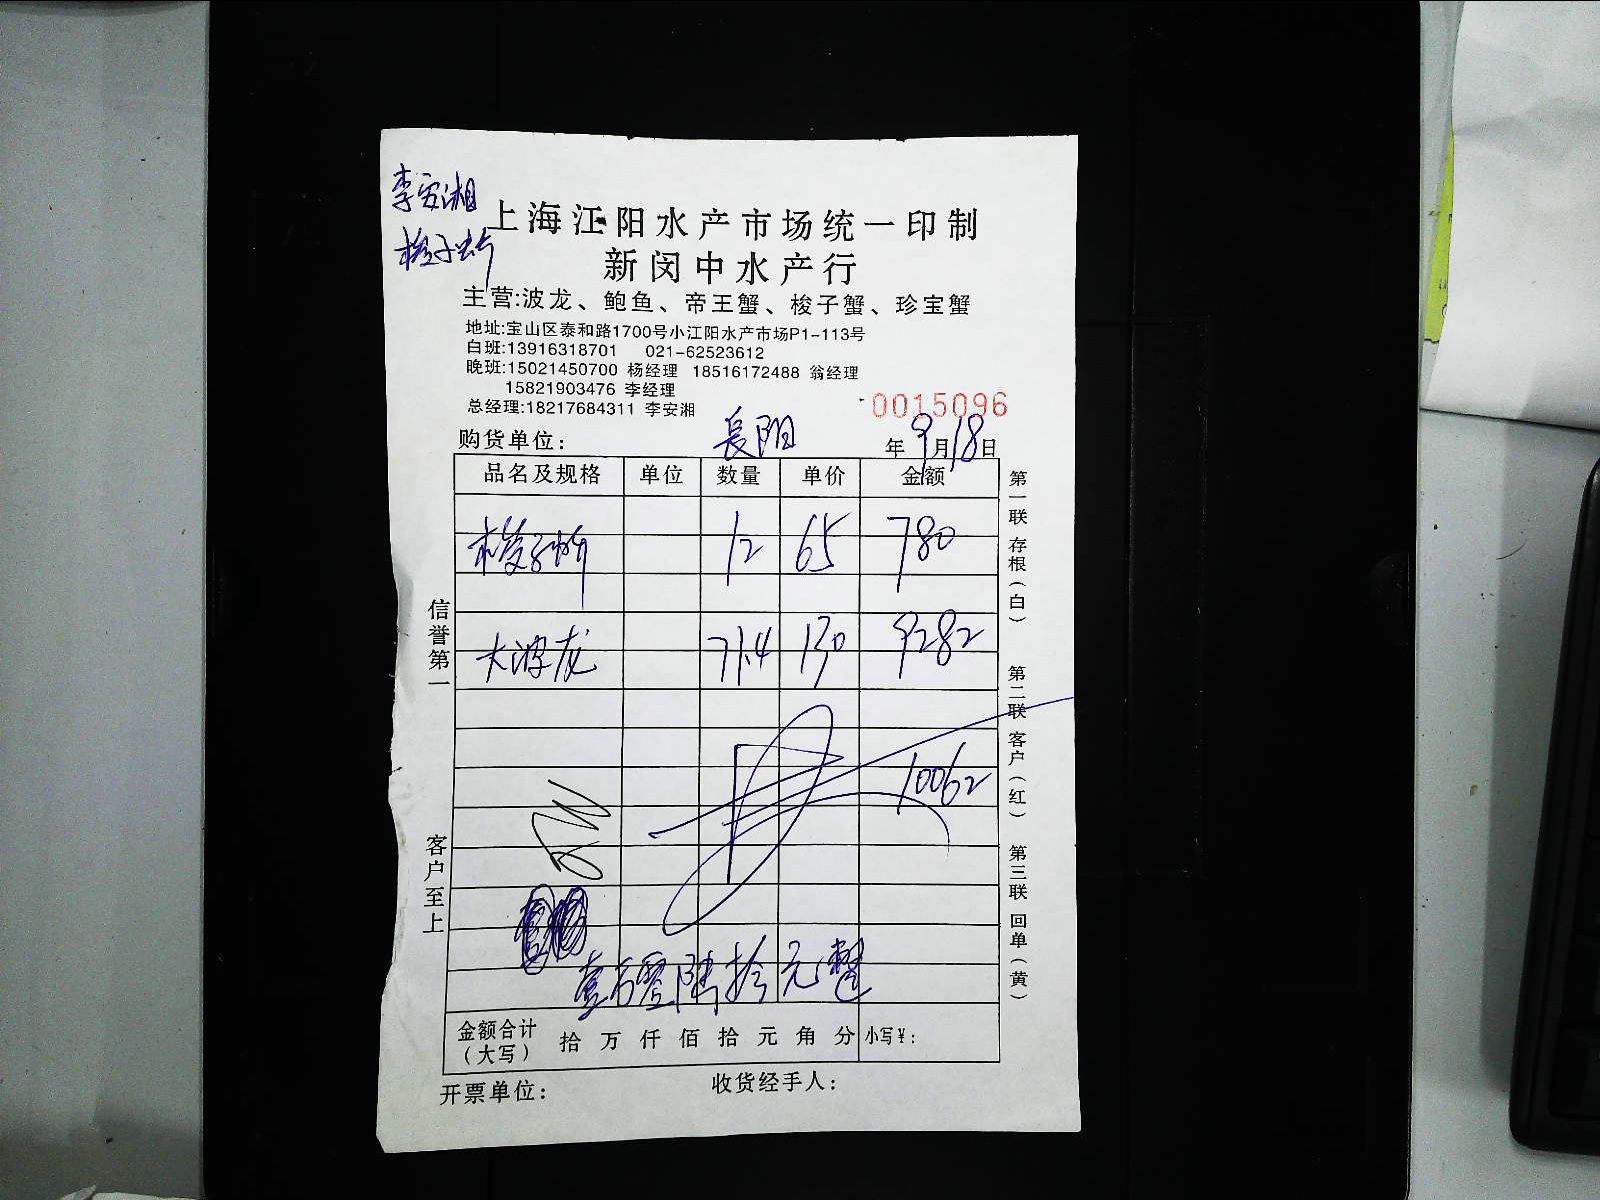 李安湘
梭子蟹
上海江阳水产市场统一印制
新闵中水产行
主营:波龙、鲍鱼、帝王蟹、梭子蟹、珍宝蟹
地址:宝山区泰和路1700号小江阳水产市场P1-113号
白班:13916318701 021-62523612
晚班:15021450700 杨经理 18516172488 翁经理
15821903476 李经理
总经理:18217684311 李安湘
0015096
购货单位: 良阳 年9月18日
品名及规格 单位 数量 单价 金额
梭子蟹 12 65 780
大波龙 71.4 130 9282
10062
壹万零陆拾元整
金额合计(大写) 拾 万 仟 佰 拾 元 角 分 小写¥:
开票单位: 收货经手人:
信誉第一
客户至上
第一联 存根(白)
第二联 客户(红)
第三联 回单(黄)